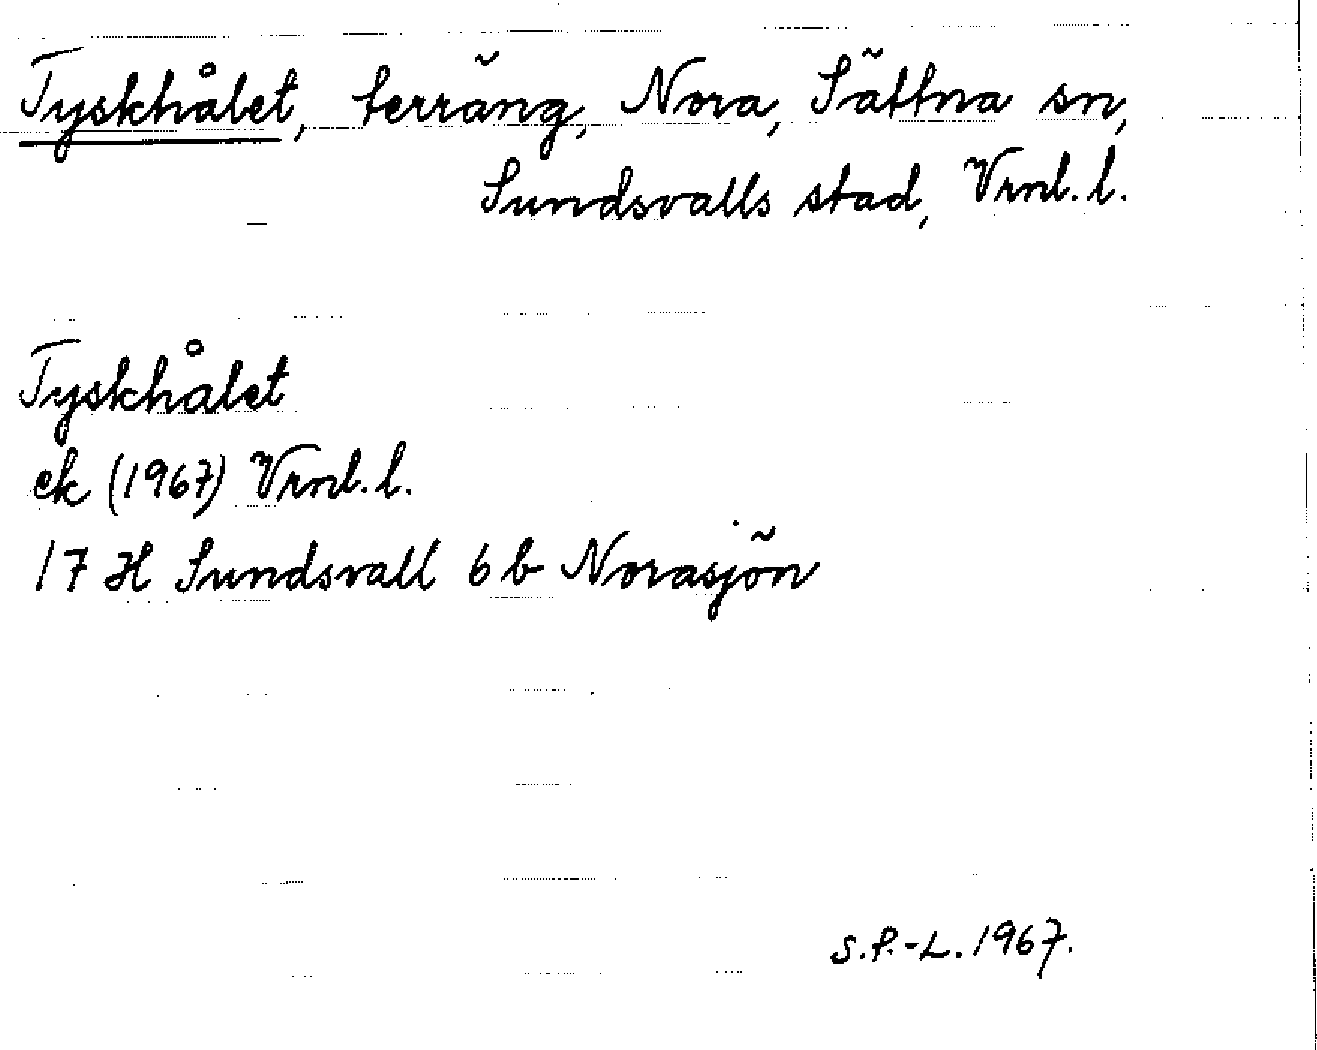 Tyskhålet, terräng, Nora, Sättna sn,
Sundsvalls stad, Vrnl. l.
Tyskhålet
ek (1967) Vrnl. l.
17 H Sundsvall 6 b Norasjön
S.P.-L. 1967.